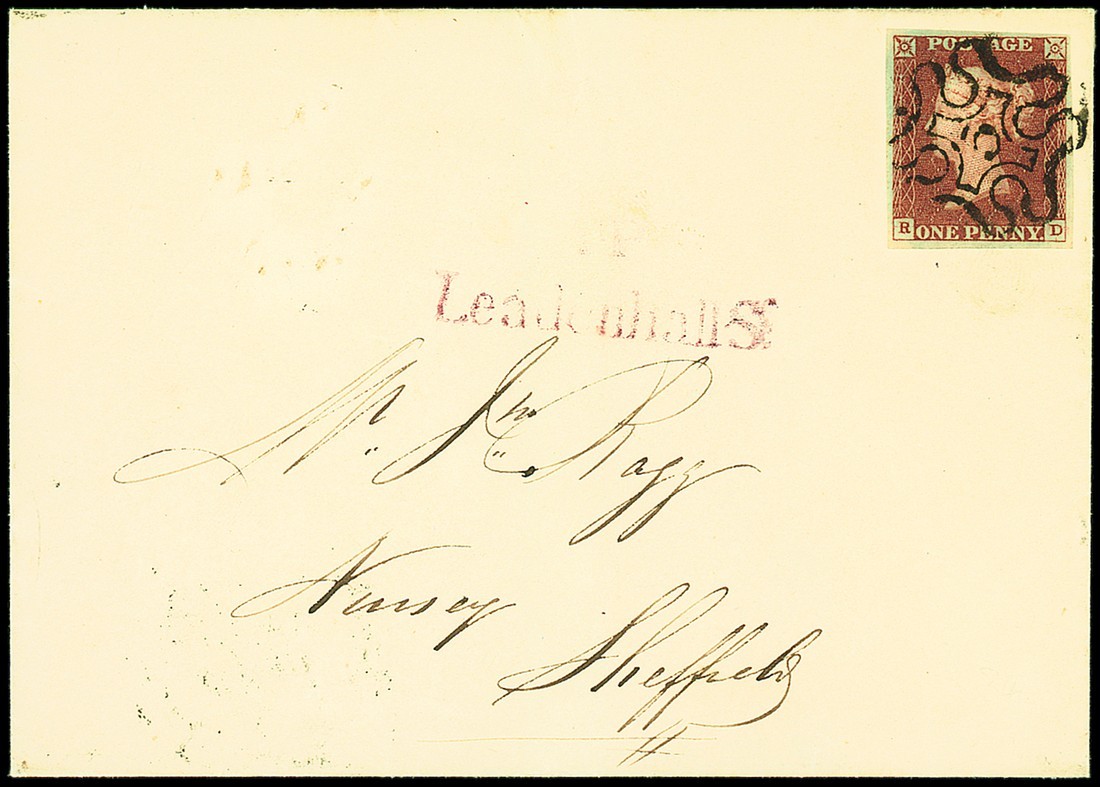 POSTAGE
5
R ONE PENNY. D
Leadenhall St
Mr. Jno. Ragg
Nursey
Sheffield